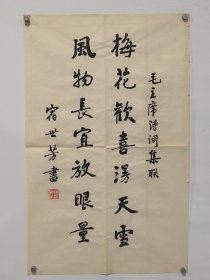 毛主席诗词集联
梅花歡喜漫天雪
風物長宜放眼量
宿世芳書